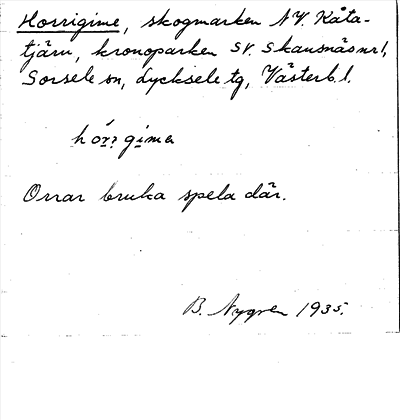 Horrigime, skogmarken N.V. Kåta-
tjärn, kronoparken SV. Skansnäs nr 1,
Sorsele sn, Lycksele tg, Västerb. l.
hórrgimɛ
Orrar bruka spela där.
B. Nygren 1935.